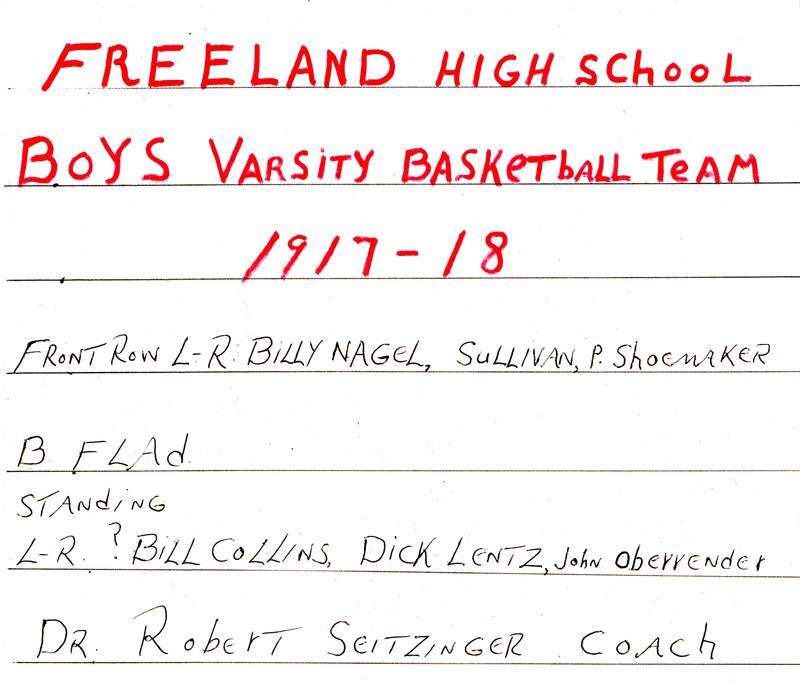 FREELAND HIGH SCHooL
BoYS VARSiTY BASKeTbALL TeAM
1917-18
FRONT ROW L-R. BILLY NAGEL, SULLIVAN, P. ShoeMAKER
B. FLAd.
STANdiNG
L-R. ? BILL COLLINS, DICK LENTZ, John Oberrender
DR. RobeRT SEITZINGER COACh